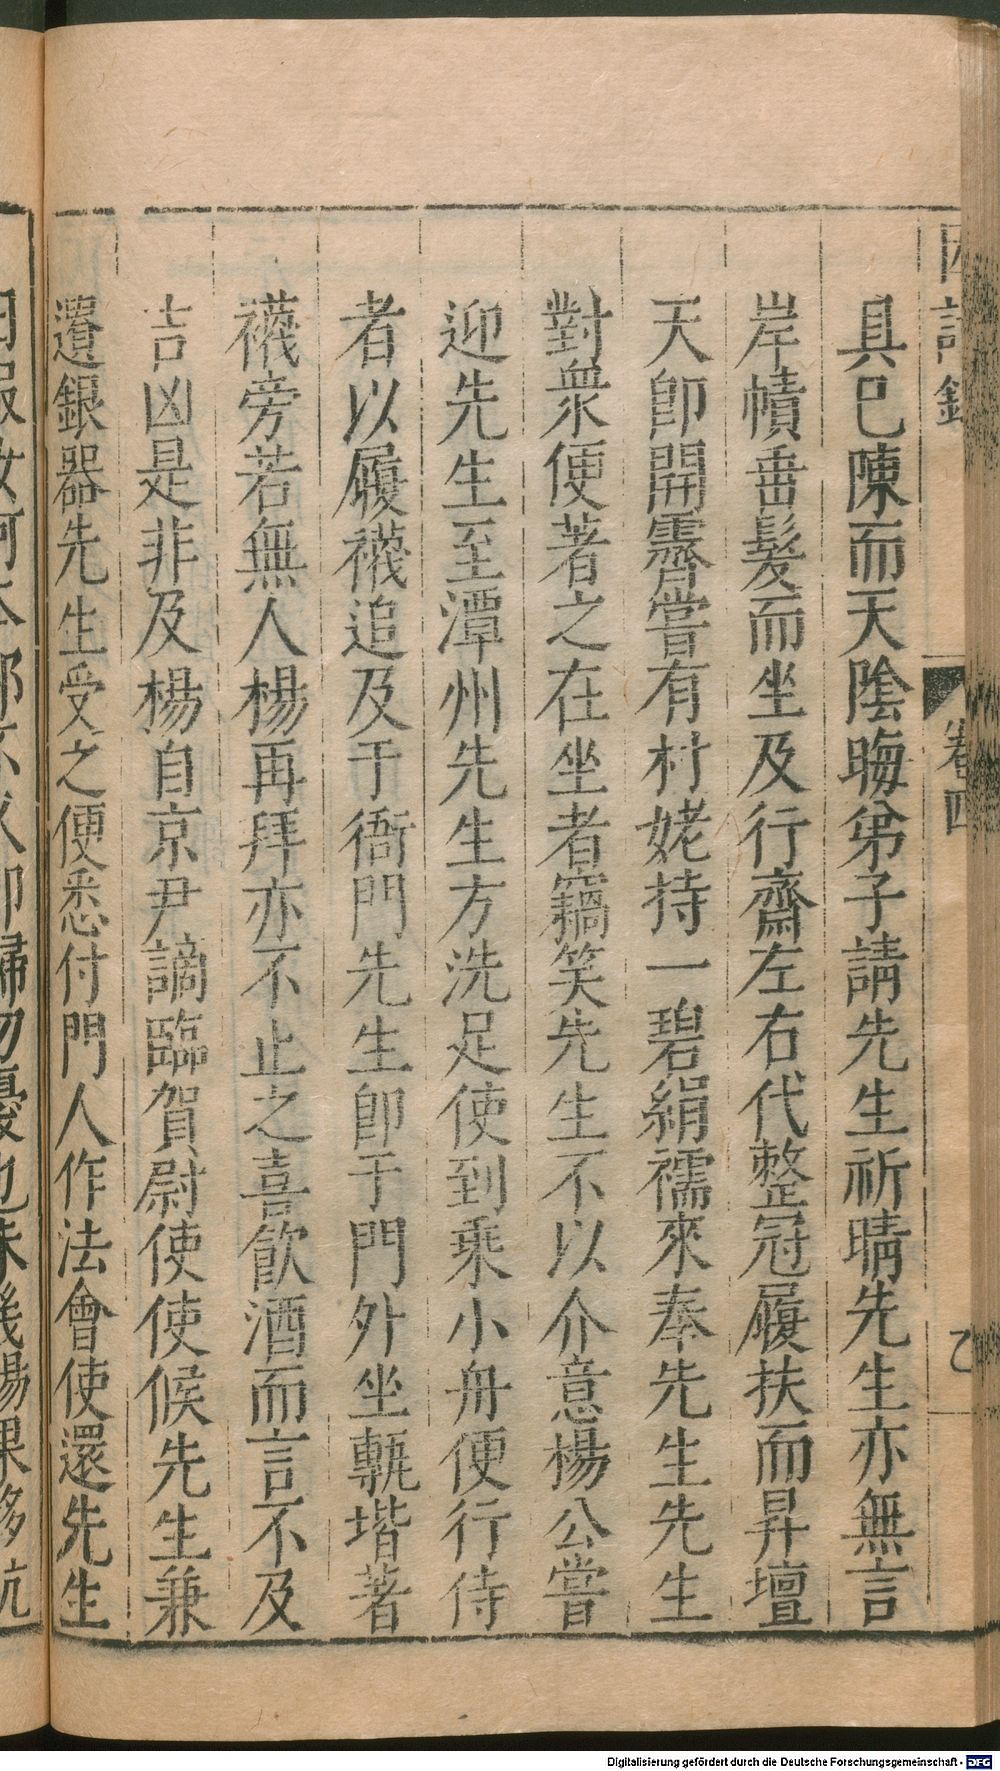 具已陳而天陰晦弟子請先生祈晴先生亦無言
岸幘垂髮而坐及行齋左右代整冠履扶而昇壇
天即開霽嘗有村姥持一碧絹襦來奉先生先生
對衆便著之在坐者竊笑先生不以介意楊公嘗
迎先生至潭州先生方洗足使到乘小舟便行侍
者以履襪追及于衙門先生即于門外坐甎堦著
襪旁若無人楊再拜亦不止之喜飲酒而言不及
吉凶是非及楊自京尹謫臨賀尉使使候先生兼
遺銀器先生受之便悉付門人作法會使還先生
卷四
Digitalisierung gefördert durch die Deutsche Forschungsgemeinschaft - DFG